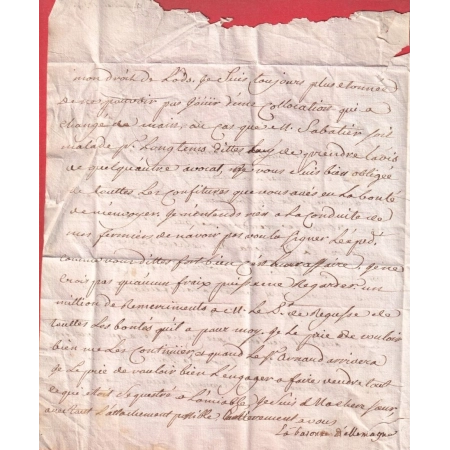 mon droit de Lods, Je suis toujours plus etonnée
de ne pouvoir pas joüir d'une Collocation qui a
changé de main, au cas que Mr. Sabatier soit
malade pr. Longtems dittes luy de prendre lavis
de quelquautre avocat, je vous suis bien obligée
de touttes Les Confitures que vous avés eu La bonté
de m'envoyer, Je m'entends rien a La Conduitte de
mes fermiers de n'avoir pas voulu signer
comme vous dittes fort bien affaire, Je ne
crois pas qu'aucun fraix puisse me Regarder, un
million de Remerciments a Mr. Le Pt. de Regusse de
touttes Les bontés qu'il a pour moy, Je Le prie de vouloir
bien me Les Continüer, quand Le Sr. Arnaud arrivera
Je Le prie de vouloir bien L'engager a faire vendre tout
ce qui etoit Sequestré a L'amiable, Je suis Monsieur
avec tout L'attachement possible Entierement a vous
La baronne d'allemagne